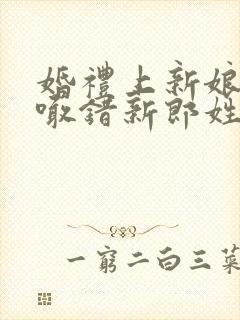 婚禮上新娘
喊錯新郎姓
一窮二白三菜